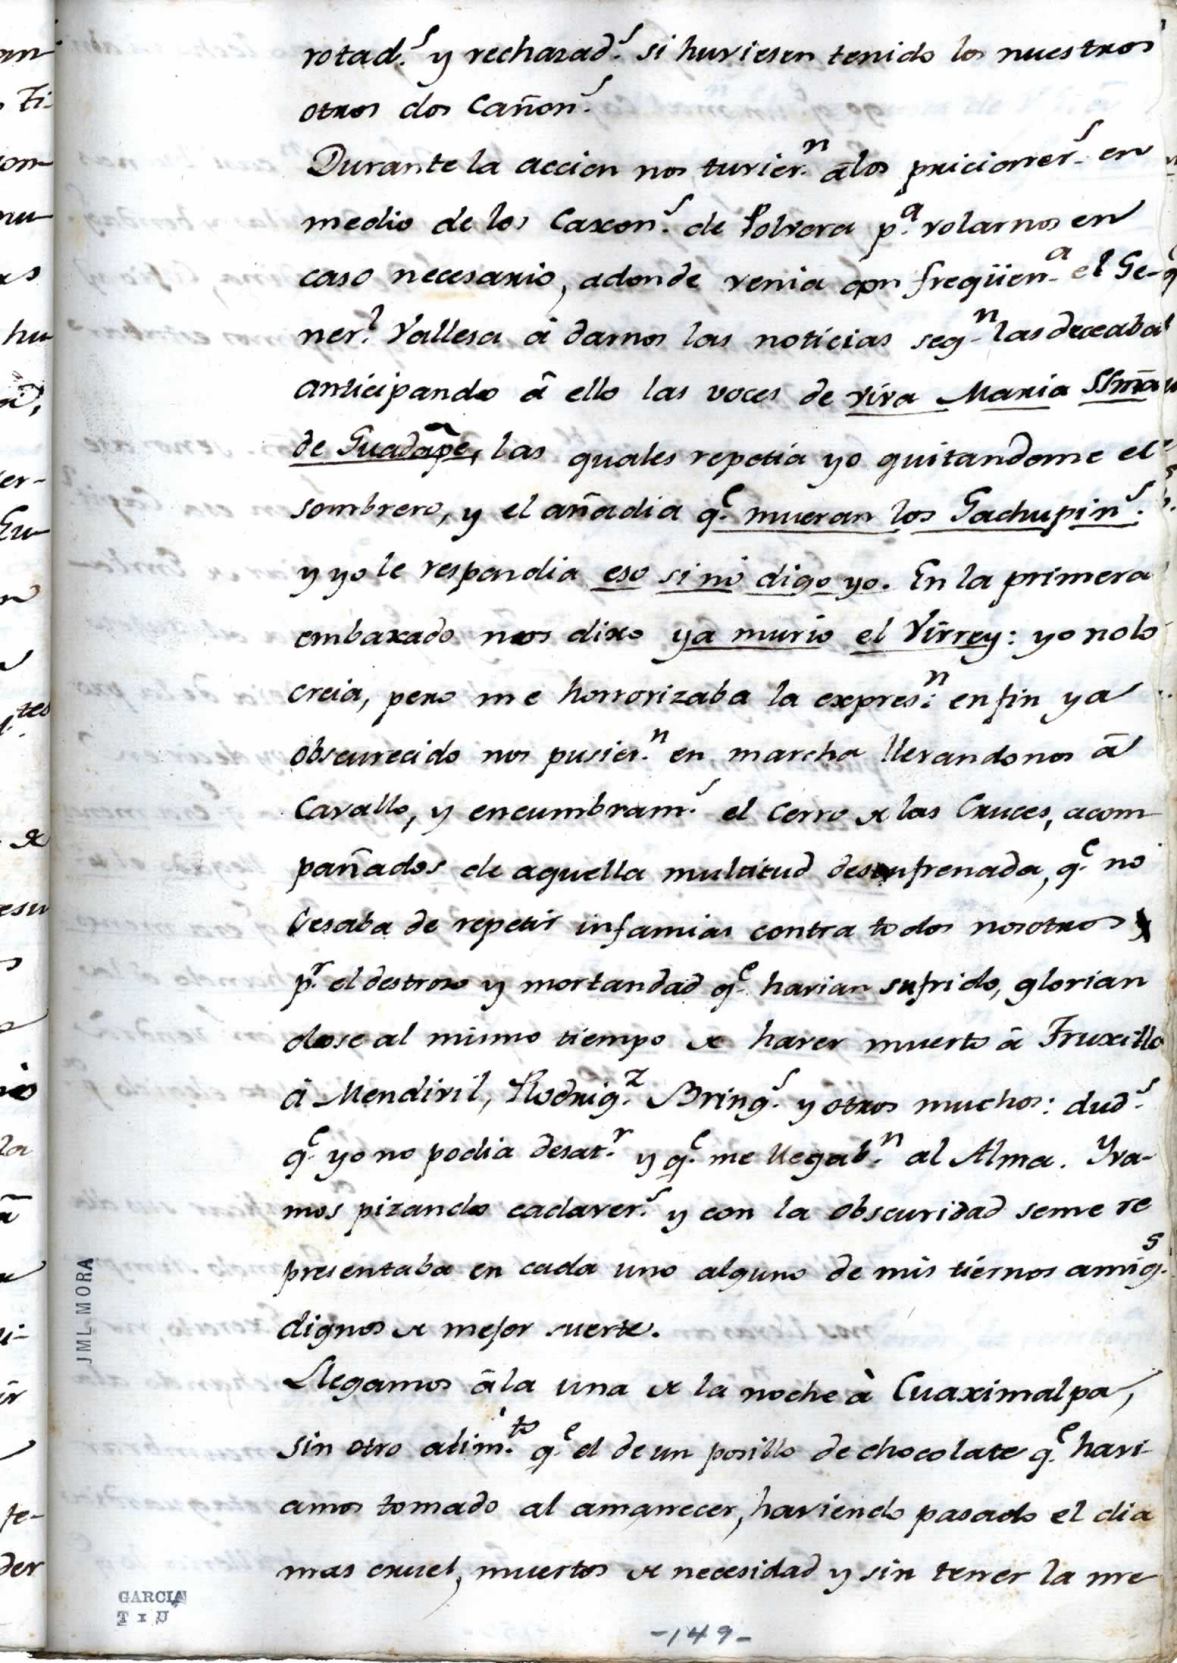 rotad.s y rechazad.s si huviesen tenido los nuestros
otros dos Cañon.s
Durante la accion nos tuvier.n â los pricioner.s en
medio de los Caxon.s de Polvora p.a volarnos en
caso necesario, adonde venia con freqüen.a el Ge-
ner.l Vallesa à darnos las noticias seg.n las deceaba
anticipando â ello las voces de viva Maria Sŝma
de Guadâpe, las quales repetia yo quitandome el
sombrero, y el añadia q.e mueran los Gachupin.s
y yo le respondia eso si no digo yo. En la primera
embaxado nos dixo ya murio el Virrey: yo no lo
creia, pero me horrorizaba la expres.n: en fin ya
obscurecido nos pusier.n en marcha llevandonos â
Cavallo, y encumbram.s el Cerro de las Cruces, acom
pañados de aquella multitud desenfrenada, q.e no
Cesaba de repetir infamias contra todos nosotros
p.r el destrozo y mortandad q.e havian sufrido, glorian
dose al mismo tiempo de haver muerto â Truxillo
â Mendivil, Rodrig.z Bring.s y otros muchos: dud.s
q.e yo no podia desat.r y q.e me llegab.n al Alma. Yva-
mos pizando cadaver.s y con la obscuridad seme re
presentaba en cada uno alguno de mis tiernos amig.s
dignos de mejor suerte.
Llegamos â la una de la noche à Cuaximalpa,
sin otro alim.to q.e el de un posillo de chocolate q.e havi
amos tomado al amanecer, haviendo pasado el dia
mas cruel, muertos de necesidad y sin tener la me
JML MORA
GARCIA
-149-